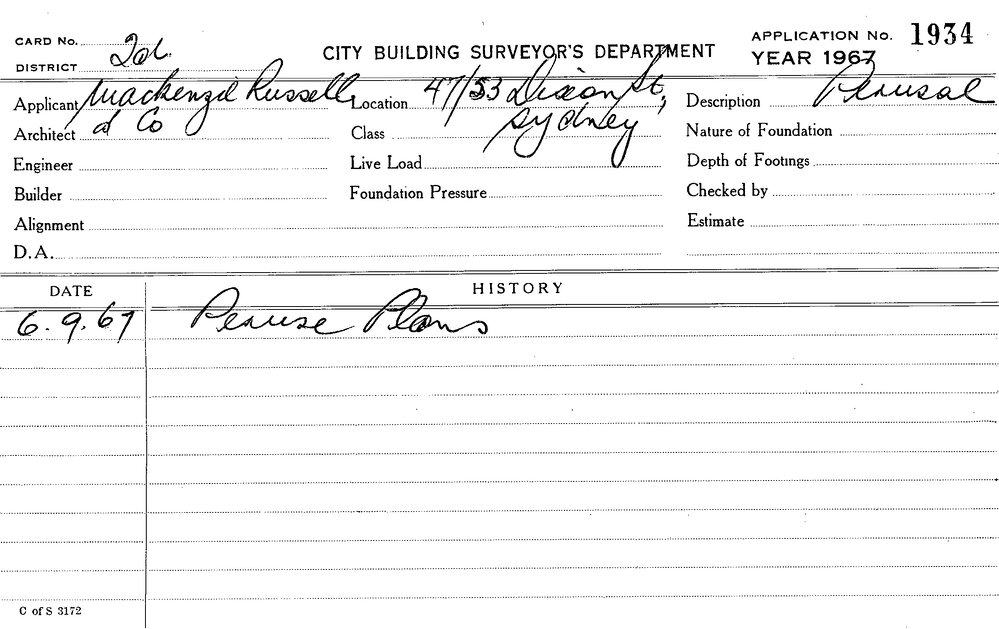 CARD No.
DISTRICT 2d.
CITY BUILDING SURVEYOR'S DEPARTMENT
APPLICATION No. 1934
YEAR 1967
Applicant Mackenzie Russell & Co
Location 47/53 Dixon St, Sydney
Description Perusal
Architect
Class
Nature of Foundation
Engineer
Live Load
Depth of Footings
Builder
Foundation Pressure
Checked by
Alignment
Estimate
D.A.
DATE
HISTORY
6.9.67 Peruse Plans
C of S 3172